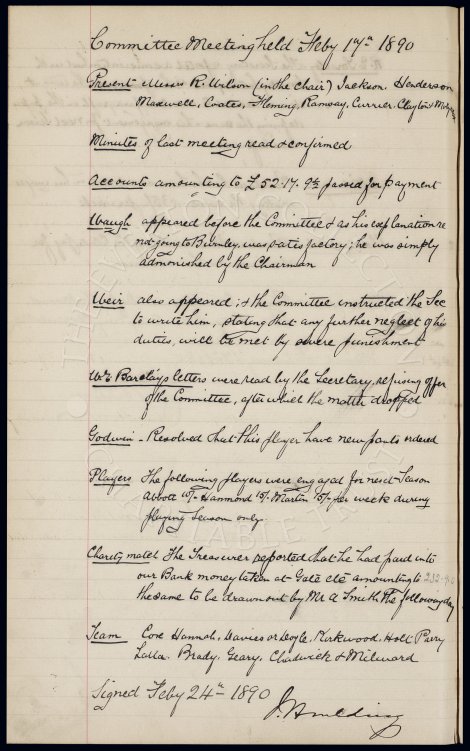 Committee Meeting held Feby 17th 1890
Present Messrs R. Wilson (in the chair) Jackson. Henderson
Maxwell, Coates, Fleming, Ramsay, Currier, Clayton &
Minutes of last meeting read & confirmed
Accounts amounting to £52.17. 9½ passed for payment
Waugh appeared before the Committee & as his explanation re
not going to Burnley, was satisfactory; he was simply
admonished by the Chairman
Weir also appeared; & the Committee instructed the Sec
to write him, stating that any further neglect of his
duties, will be met by severe punishment
Wm Barclays letters were read by the Secretary, refusing offer
of the Committee, after which the matter dropped
Godwin - Resolved that this player have new pants ordered
Players The following players were engaged for next Season
Abbott Hammond 15/- Martin 15/- per week during
playing season only.
Charity match The Treasurer reported that he had paid into
our Bank money taken at Gate etc amounting to
the same to be drawn out by Mr A Smith the following day
Team Cox Hannah, Davies or Doyle, Kirkwood, Holt Parry
Latta. Brady, Geary, Chadwick & Milward
Signed Feby 24th 1890
J. Houlding
THE EVERTON COLLECTION
CHARITABLE TRUST